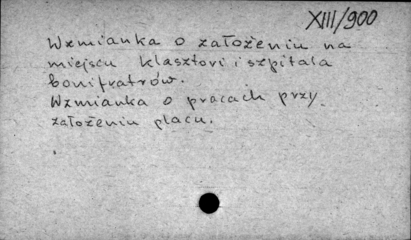 XIII/900
Wzmianka o założeniu na
miejscu klasztori i szpitala
bonifratrów.
Wzmianka o pracach przy
założeniu placu.